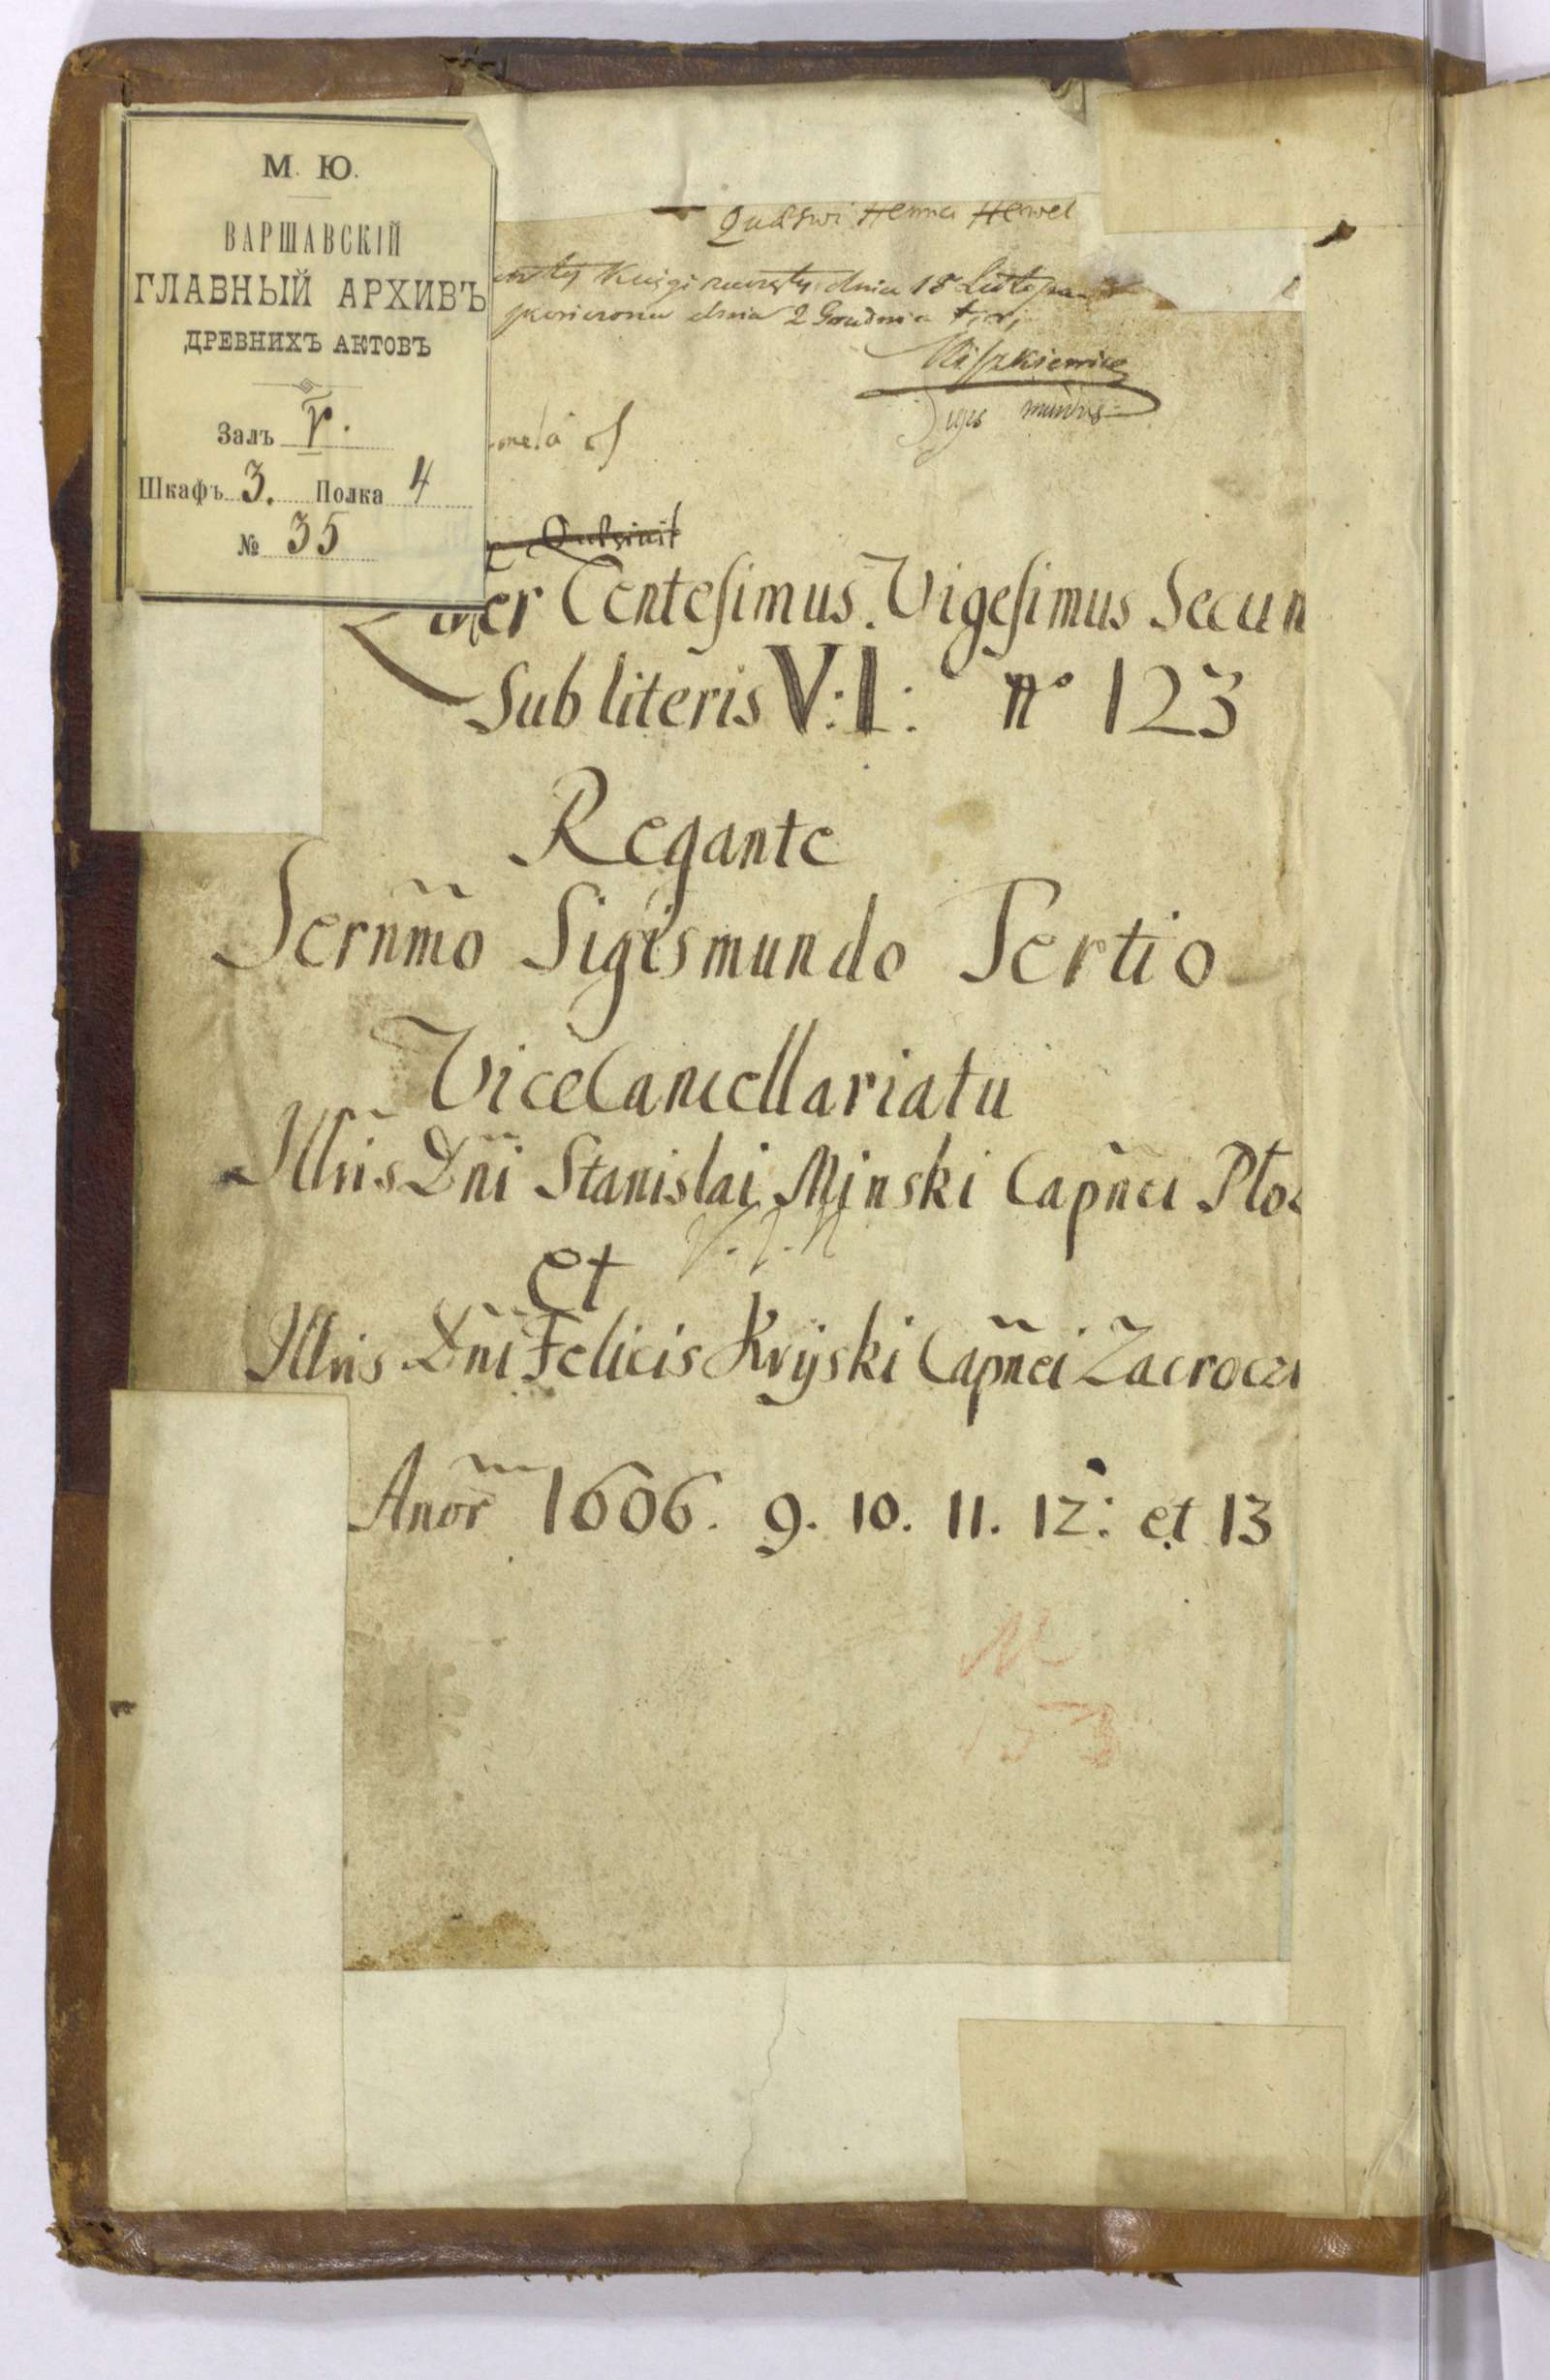 М. Ю.
ВАРШАВСКІЙ
ГЛАВНЫЙ АРХИВЪ
ДРЕВНИХЪ АКТОВЪ
Залъ V.
Шкафъ 3. Полка 4
№ 35
Henna Hewel
Księgi zaczęty dnia 18 Listopa
skończona dnia 2 Grudnia t. r.
Liber Centesimus Vigesimus Secun
Sub literis V: I: nº 123
Regante
Sernm̃o Sigismundo Tertio
ViceCancellariatu
Illris Dñi Stanislai Minski Capñei Ploc
V. I. N
et
Illris Dñi Felicis Kryski Capñei Zacrocz
Anor̃ 1606. 9. 10. 11. 12: et 13
M
153